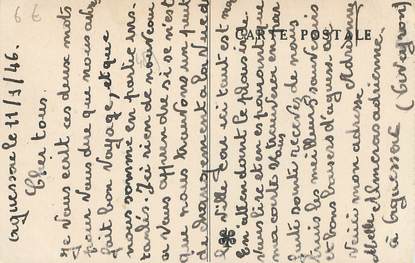 6 €
CARTE POSTALE
Aguessac le 11/1/46.
Cher tous.
Je vous écrit ces deux mots
pour vous dire que nous avons
fait bon voyage, et que
nous somme en partie ins-
tallés. Ici rien de nouveau
a vous apprendre si se n'est
que nous trouvons un peut
de changement a la vue de
la ville. Car ici tout est
En attendant le plaisir de
vous lire et en espérant que
ma carte vous trouvera en
faite santé recevez de nos
tuis les meilleurs souvenirs
et bons baisers d'aguessac
Adrienne
Voici mon adresse
Melle Almeras adrienne.
à Aguessac (Aveyron)